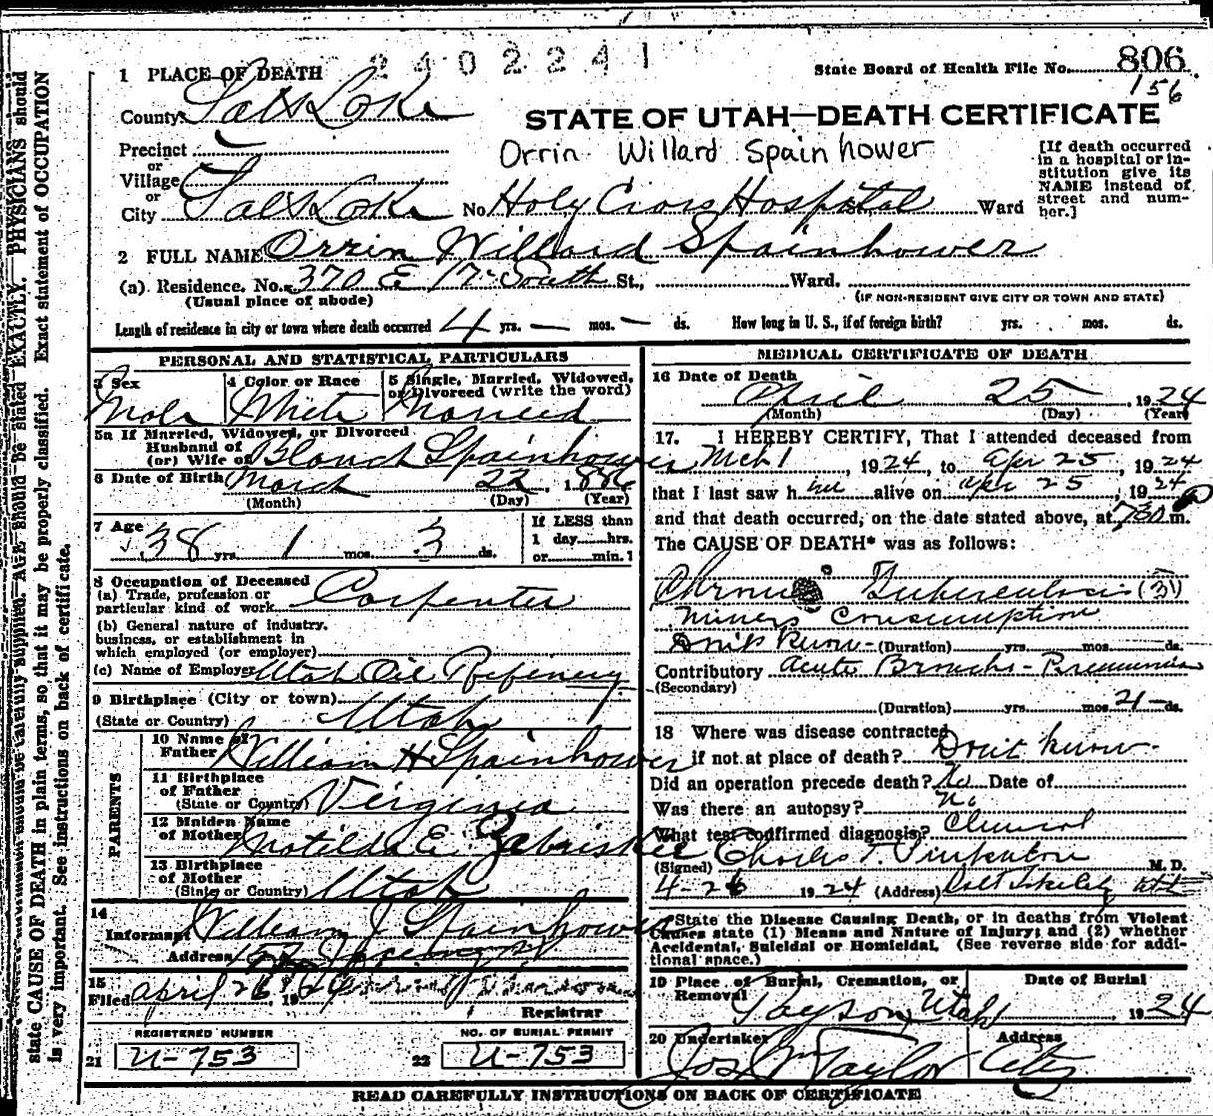 2402241
State Board of Health File No. 806
156
1 PLACE OF DEATH
County Salt Lake
STATE OF UTAH—DEATH CERTIFICATE
Precinct
or
Village
or
City Salt Lake
Orrin Willard Spainhower
No. Holy Cross Hospital Ward
[If death occurred
in a hospital or in-
stitution give its
NAME instead of
street and num-
ber.]
2 FULL NAME Orrin Willard Spainhower
(a) Residence. No. 370 E 17 South St., Ward.
(Usual place of abode)
(IF NON-RESIDENT GIVE CITY OR TOWN AND STATE)
Length of residence in city or town where death occurred 4 yrs. — mos. — ds. How long in U. S., if of foreign birth? yrs. mos. ds.
PERSONAL AND STATISTICAL PARTICULARS
3 Sex
Male
4 Color or Race
White
5 Single, Married, Widowed,
or Divorced (write the word)
Married
5a If Married, Widowed, or Divorced
Husband of
(or) Wife of Blanch Spainhower
6 Date of Birth March 22, 1886
(Month) (Day) (Year)
7 Age
38 yrs. 1 mos. 3 ds.
If LESS than
1 day hrs.
or min.?
8 Occupation of Deceased
(a) Trade, profession or
particular kind of work Carpenter
(b) General nature of industry,
business, or establishment in
which employed (or employer)
(c) Name of Employer Utah Oil Refinery
9 Birthplace (City or town)
(State or Country) Utah
PARENTS
10 Name of
Father William H Spainhower
11 Birthplace
of Father
(State or Country) Virginia
12 Maiden Name
of Mother Matilda E. Zabriskie
13 Birthplace
of Mother
(State or Country) Utah
14
Informant William J Spainhower
Address
15
Filed April 26, 1924
Registrar
REGISTERED NUMBER
21 U-753
NO. OF BURIAL PERMIT
22 U-753
MEDICAL CERTIFICATE OF DEATH
16 Date of Death
April 25, 1924
(Month) (Day) (Year)
17. I HEREBY CERTIFY, That I attended deceased from
Mch 1, 1924, to Apr 25, 1924
that I last saw him alive on Apr 25, 1924
and that death occurred, on the date stated above, at 730 P m.
The CAUSE OF DEATH* was as follows:
Chronic Tuberculosis (31)
Miners Consumption
Don't know (Duration) yrs. mos. ds.
Contributory Acute Broncho-Pneumonia
(Secondary)
(Duration) yrs. mos. 4 ds.
18 Where was disease contracted
if not at place of death? Don't know
Did an operation precede death? No Date of
Was there an autopsy? No
What test confirmed diagnosis? Clinical
(Signed) Charles F. Pinkerton M. D.
4-26 1924 (Address) Salt Lake City Utah
*State the Disease Causing Death, or in deaths from Violent
Causes state (1) Means and Nature of Injury; and (2) whether
Accidental, Suicidal or Homicidal. (See reverse side for addi-
tional space.)
19 Place of Burial, Cremation, or
Removal Payson, Utah
Date of Burial
1924
20 Undertaker
Jos Wm Taylor
Address
City
READ CAREFULLY INSTRUCTIONS ON BACK OF CERTIFICATE
state CAUSE OF DEATH in plain terms, so that it may be properly classified. Exact statement of OCCUPATION
is very important. See instructions on back of certificate.